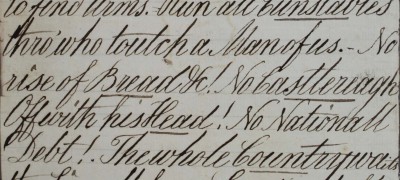 to find Arms. Run all Cunstables
thro' who toutch a Man of us. - No
rise of Bread &c! No Castlereagh
Off with his Head! No Nationall
Debt! The whole Country waits